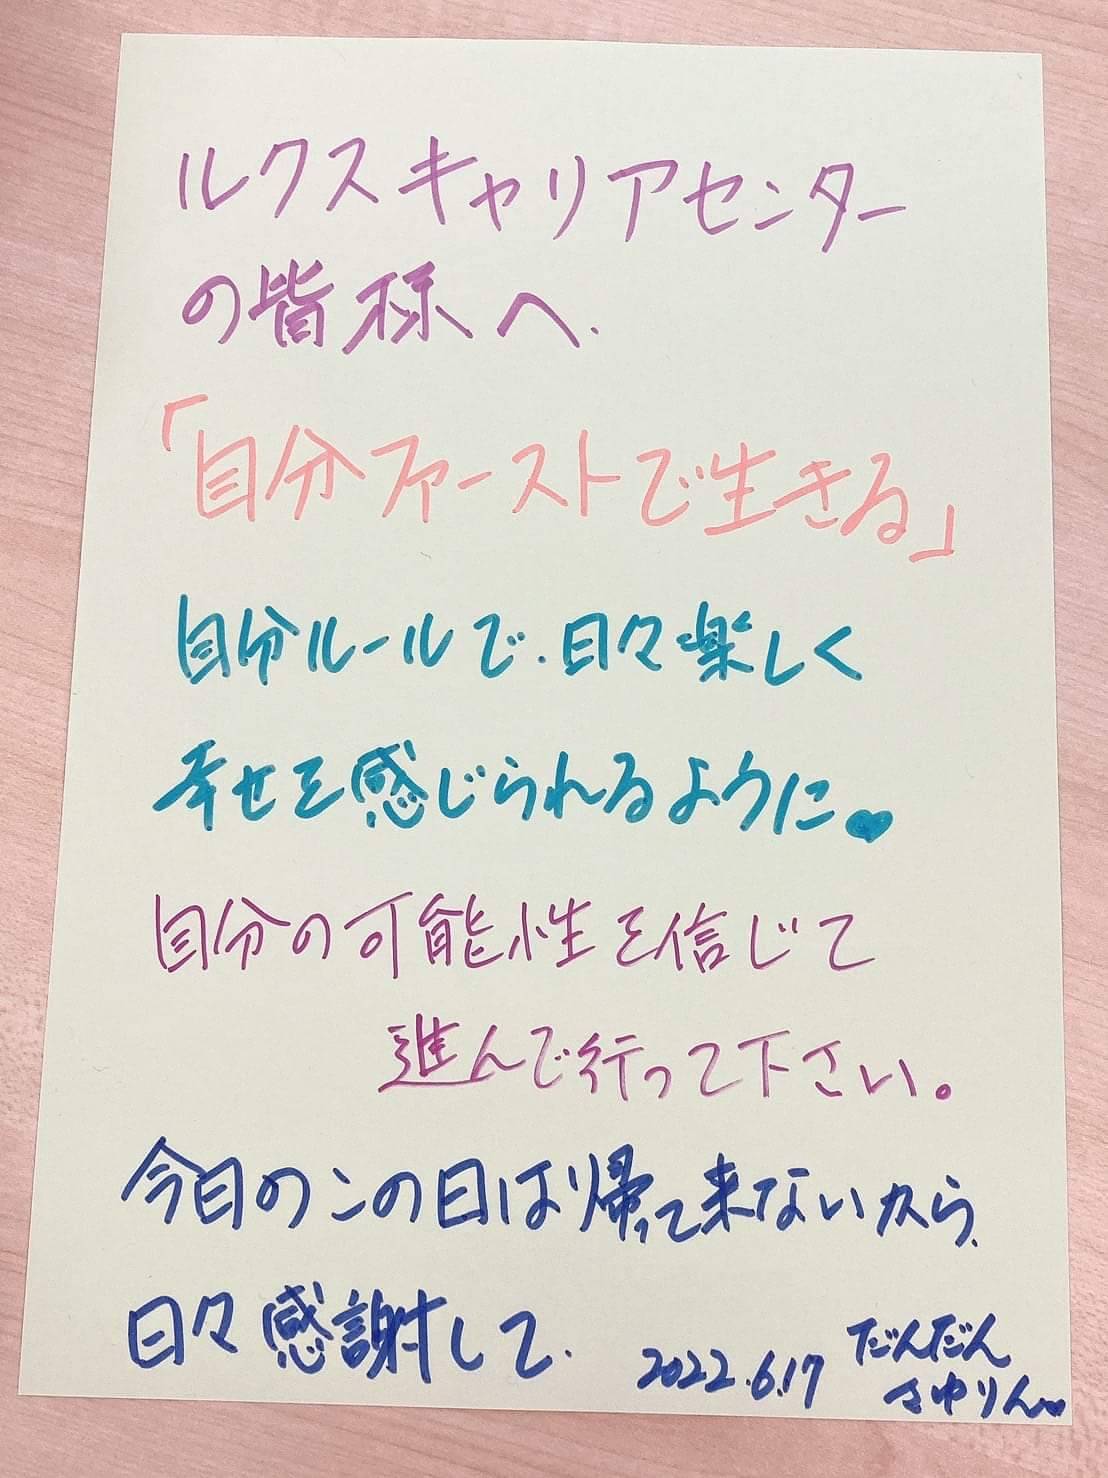 ルクスキャリアセンター
の皆様へ.
「自分ファーストで生きる」
自分ルールで、日々楽しく
幸せを感じられるように♥
自分の可能性を信じて
進んで行って下さい。
今日のこの日は帰って来ないから、
日々感謝して.
2022.6.17
だんだん
さゆりん♥